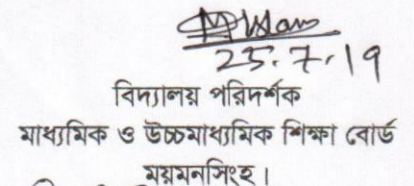 25.7.19
বিদ্যালয় পরিদর্শক
মাধ্যমিক ও উচ্চমাধ্যমিক শিক্ষা বোর্ড
ময়মনসিংহ।